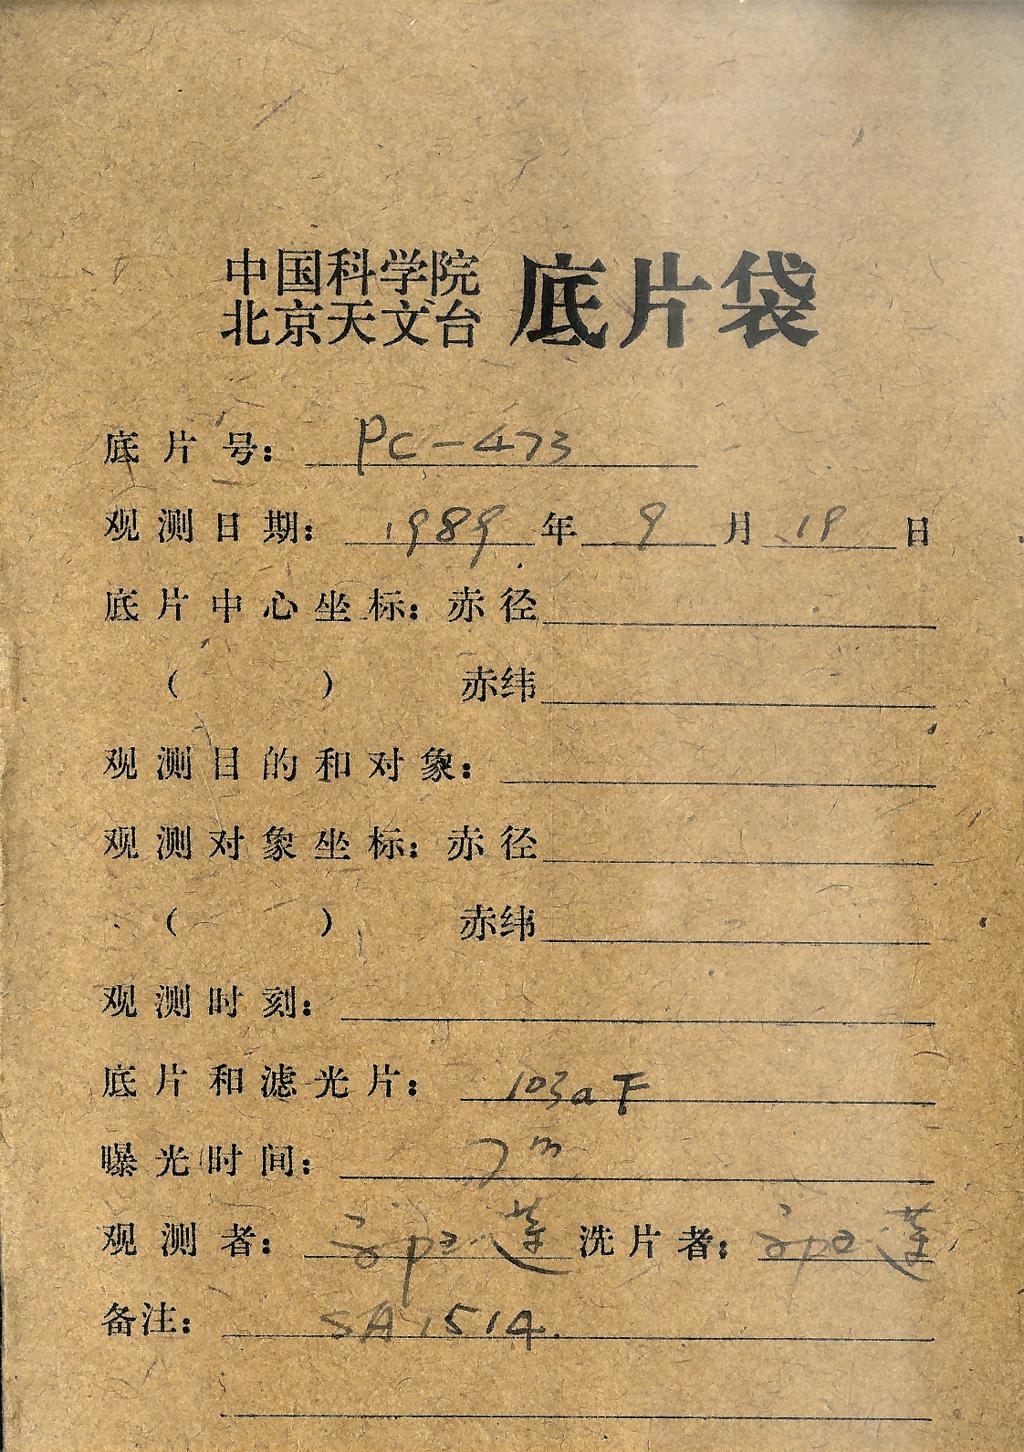 中国科学院
北京天文台 底片袋
底片号: PC-473
观测日期: 1989年9月19日
底片中心坐标: 赤径
( ) 赤纬
观测目的和对象:
观测对象坐标: 赤径
( ) 赤纬
观测时刻:
底片和滤光片: 103aF
曝光时间: 7m
观测者: 洗片者:
备注: SA1514.